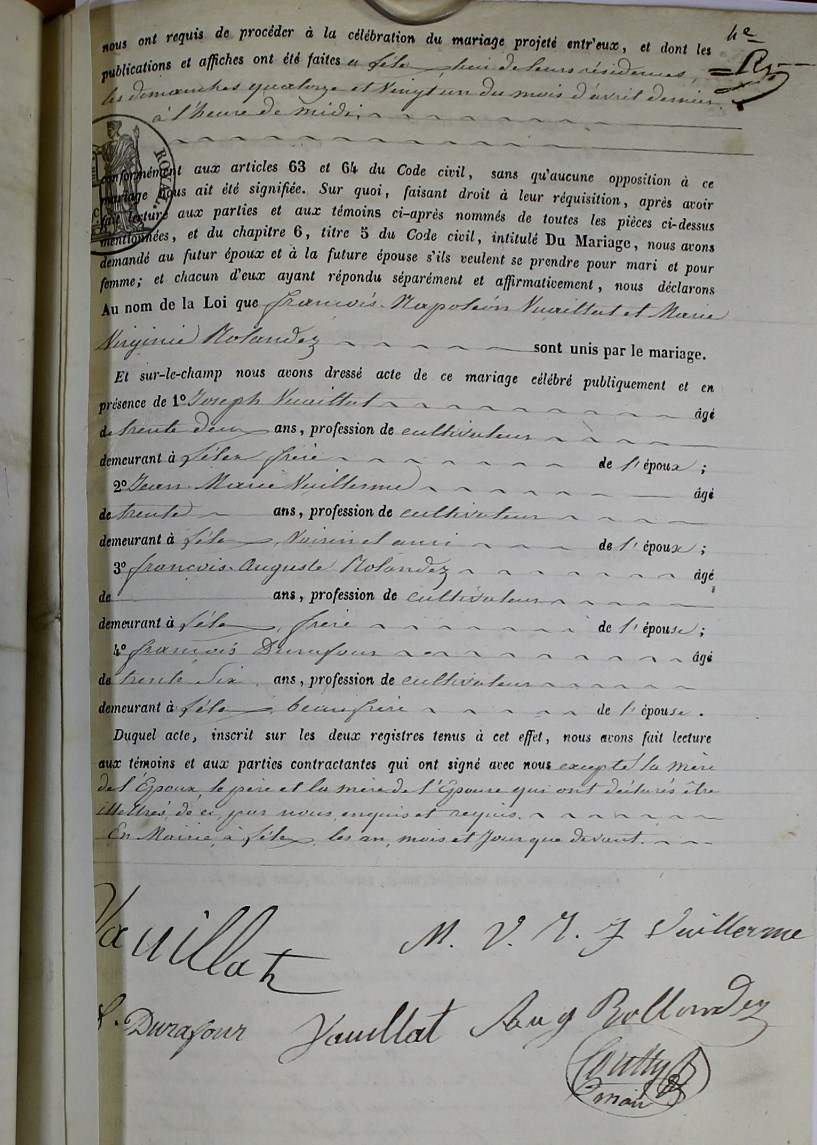 4e
nous ont requis de procéder à la célébration du mariage projeté entr'eux, et dont les
publications et affiches ont été faites a félex lieu de leurs résidences,
les dimanches quatorze et vingt un du mois d'avril dernier
à l'heure de midi,
ROYAL
conformément aux articles 63 et 64 du Code civil, sans qu'aucune opposition à ce
mariage nous ait été signifiée. Sur quoi, faisant droit à leur réquisition, après avoir
fait lecture aux parties et aux témoins ci-après nommés de toutes les pièces ci-dessus
mentionnées, et du chapitre 6, titre 5 du Code civil, intitulé Du Mariage, nous avons
demandé au futur époux et à la future épouse s'ils veulent se prendre pour mari et pour
femme; et chacun d'eux ayant répondu séparément et affirmativement, nous déclarons
Au nom de la Loi que françois Napoléon Vuaillat et Marie
Virginie Rolandez sont unis par le mariage.
Et sur-le-champ nous avons dressé acte de ce mariage célébré publiquement et en
présence de 1º Joseph Vuaillat âgé
de trente deux ans, profession de cultivateur
demeurant à félex frère de l'époux;
2º Jean Marie Vuillerme âgé
de trente ans, profession de cultivateur
demeurant à félex, Voisin et ami de l'époux;
3º françois Auguste Rolandez âgé
de ans, profession de cultivateur
demeurant à félex, frère de l'épouse;
4º françois Durafour âgé
de trente six ans, profession de cultivateur
demeurant à félex, beau frère de l'épouse.
Duquel acte, inscrit sur les deux registres tenus à cet effet, nous avons fait lecture
aux témoins et aux parties contractantes qui ont signé avec nous excepté la mère
de l'Epoux, le père et la mère de l'Epouse qui ont déclarés être
illettrés, de ce, par nous, enquis et requis.
En Mairie, à félex, les an, mois et Jour que devant.
Vauillat
M. V. R. J Vuillerme
f. Durafour Vauillat Aug Rollandez
Coutty
maire